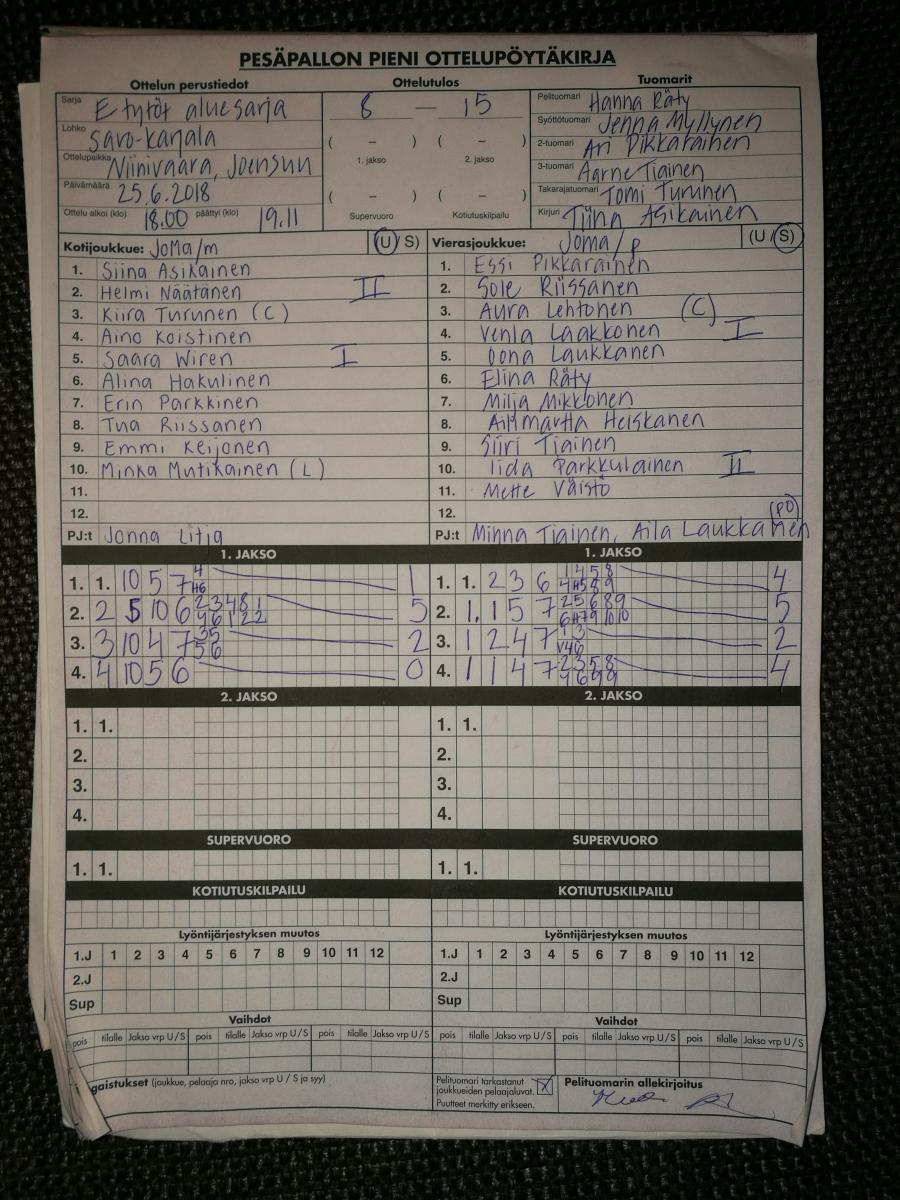 PESÄPALLON PIENI OTTELUPÖYTÄKIRJA
Ottelun perustiedot
Sarja E tytöt aluesarja
Lohko Savo-karjala
Ottelupaikka Niinivaara, Joensuu
Päivämäärä 25.6.2018
Ottelu alkoi (klo) 18.00 päättyi (klo) 19.11
Ottelutulos
8 — 15
( – ) ( – )
1. jakso 2. jakso
( – ) ( – )
Supervuoro Kotiutuskilpailu
Tuomarit
Pelituomari Hanna Räty
Syöttötuomari Jenna Myllynen
2-tuomari Ari Pikkarainen
3-tuomari Aarne Tiainen
Takarajatuomari Tomi Turunen
Kirjuri Tiina Asikainen
Kotijoukkue: JoMa/m (U/S)
1. Siina Asikainen
2. Helmi Näätänen II
3. Kiira Turunen (C)
4. Aino Koistinen
5. Saara Wiren I
6. Alina Hakulinen
7. Erin Parkkinen
8. Tua Riissanen
9. Emmi Keijonen
10. Minka Mutikainen (L)
11.
12.
PJ:t Jonna Litja
Vierasjoukkue: Joma/p (U/S)
1. Essi Pikkarainen
2. Sole Riissanen
3. Aura Lehtonen (C)
4. Venla Laakkonen I
5. Oona Laukkanen
6. Elina Räty
7. Milja Mikkonen
8. Martta Heiskanen
9. Siiri Tiainen
10. Iida Parkkulainen II
11. Mette Väistö
12.
(PO)
PJ:t Minna Tiainen, Aila Laukkanen
1. JAKSO
1. 1. 10 5 7 1
2. 2 5 10 6 5
3. 3 10 4 7 2
4. 4 10 5 6 0
1. JAKSO
1. 1. 2 3 6 4
2. 1. 1 5 7 5
3. 1 2 4 7 2
4. 1 1 4 7 4
2. JAKSO
1. 1.
2.
3.
4.
2. JAKSO
1. 1.
2.
3.
4.
SUPERVUORO
1. 1.
SUPERVUORO
1. 1.
KOTIUTUSKILPAILU
KOTIUTUSKILPAILU
Lyöntijärjestyksen muutos
1.J 1 2 3 4 5 6 7 8 9 10 11 12
2.J
Sup
Lyöntijärjestyksen muutos
1.J 1 2 3 4 5 6 7 8 9 10 11 12
2.J
Sup
Vaihdot
pois tilalle Jakso vrp U/S pois tilalle Jakso vrp U/S pois tilalle Jakso vrp U/S
Vaihdot
pois tilalle Jakso vrp U/S pois tilalle Jakso vrp U/S pois tilalle Jakso vrp U/S
gaistukset (joukkue, pelaaja nro, jakso vrp U / S ja syy)
Pelituomari tarkastanut
joukkueiden pelaajaluvat. X
Puutteet merkitty erikseen.
Pelituomarin allekirjoitus